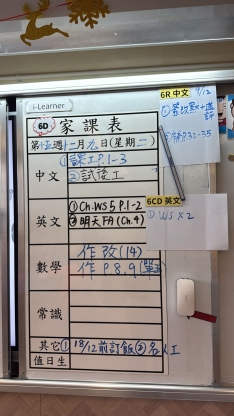 i-Learner
6D 家課表
第十五週十二月九日(星期二)
中文
①課工P.1-3
②試後工
英文
①Ch.WS 5 P.1-2
②明天FA (Ch.4)
數學
作改(14)
作P.8,9(單5)
常識
其它
①18/12前訂飯②名人工
值日生
6R 中文
9/12
6CD 英文
① WS x2